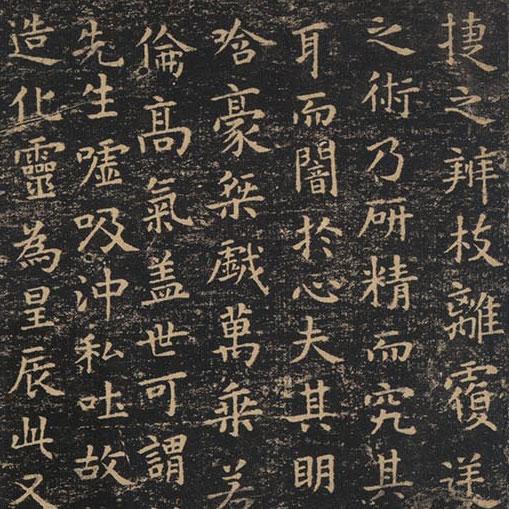 捷之辨枝離覆逆
之術乃研精而究其
耳而闇扵心夫其明
哈豪桀戲萬乘若
倫髙氣盖世可謂
先生噓吸沖和吐故
造化靈為星辰此又